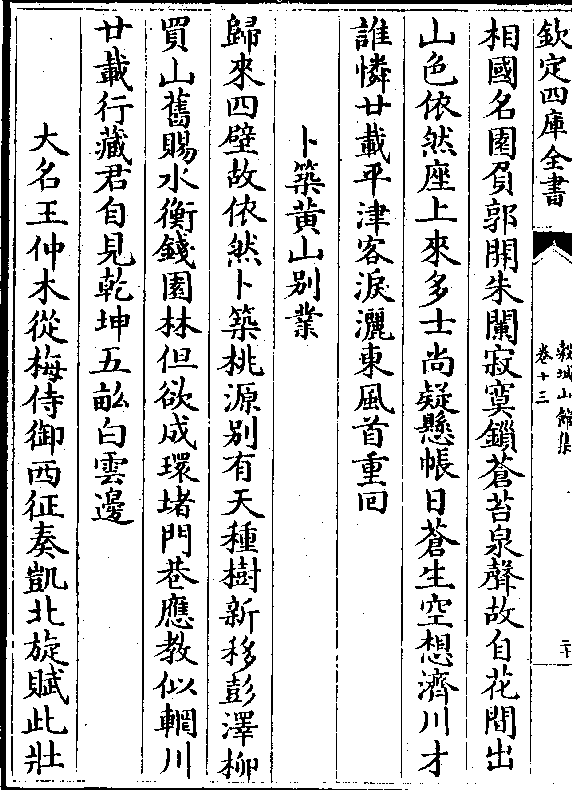 欽定四庫全書
穀城山館集
卷十三
二十
相國名園負郭開朱闌寂寞鎖蒼苔泉聲故自花間出
山色依然座上來多士尚疑懸帳日蒼生空想濟川才
誰憐廿載平津客淚灑東風首重回
卜築黃山別業
歸來四壁故依然卜築桃源別有天種樹新移彭澤柳
買山舊賜水衡錢園林但欲成環堵門巷應教似輞川
廿載行藏君自見乾坤五畝白雲邊
大名王仲木從梅侍御西征奏凱北旋賦此壯